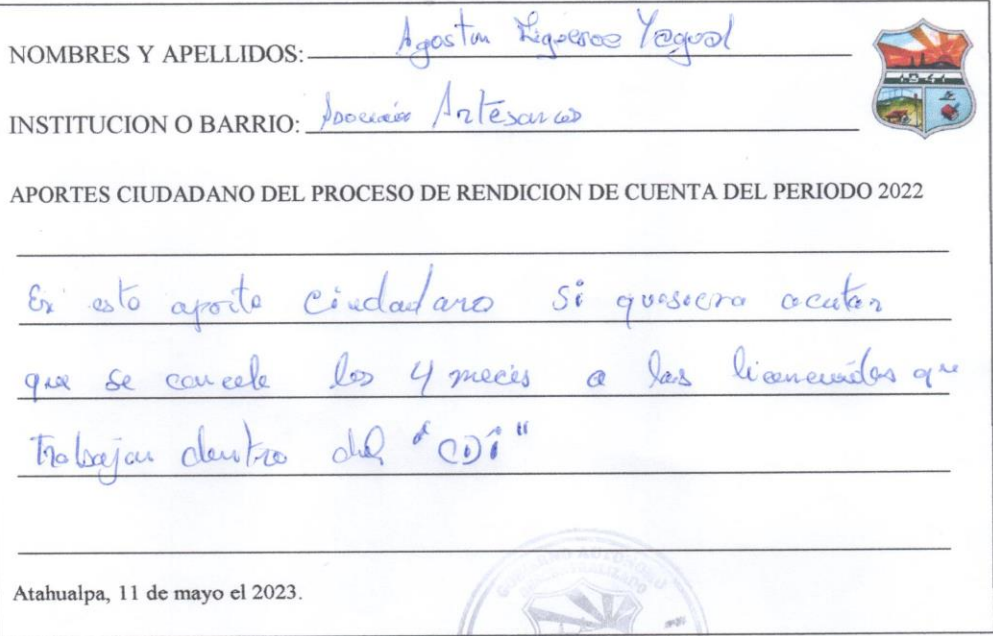 NOMBRES Y APELLIDOS: Agostin Yagual
1941
INSTITUCION O BARRIO: Asociación Artesanos
APORTES CIUDADANO DEL PROCESO DE RENDICION DE CUENTA DEL PERIODO 2022
En esto aporte ciudadano si quesiera acutar
que se cancele los 4 meces a las licenciadas que
Trabajan dentro del "CDI"
GOBIERNO AUTONOMO
DESCENTRALIZADO
Atahualpa, 11 de mayo el 2023.